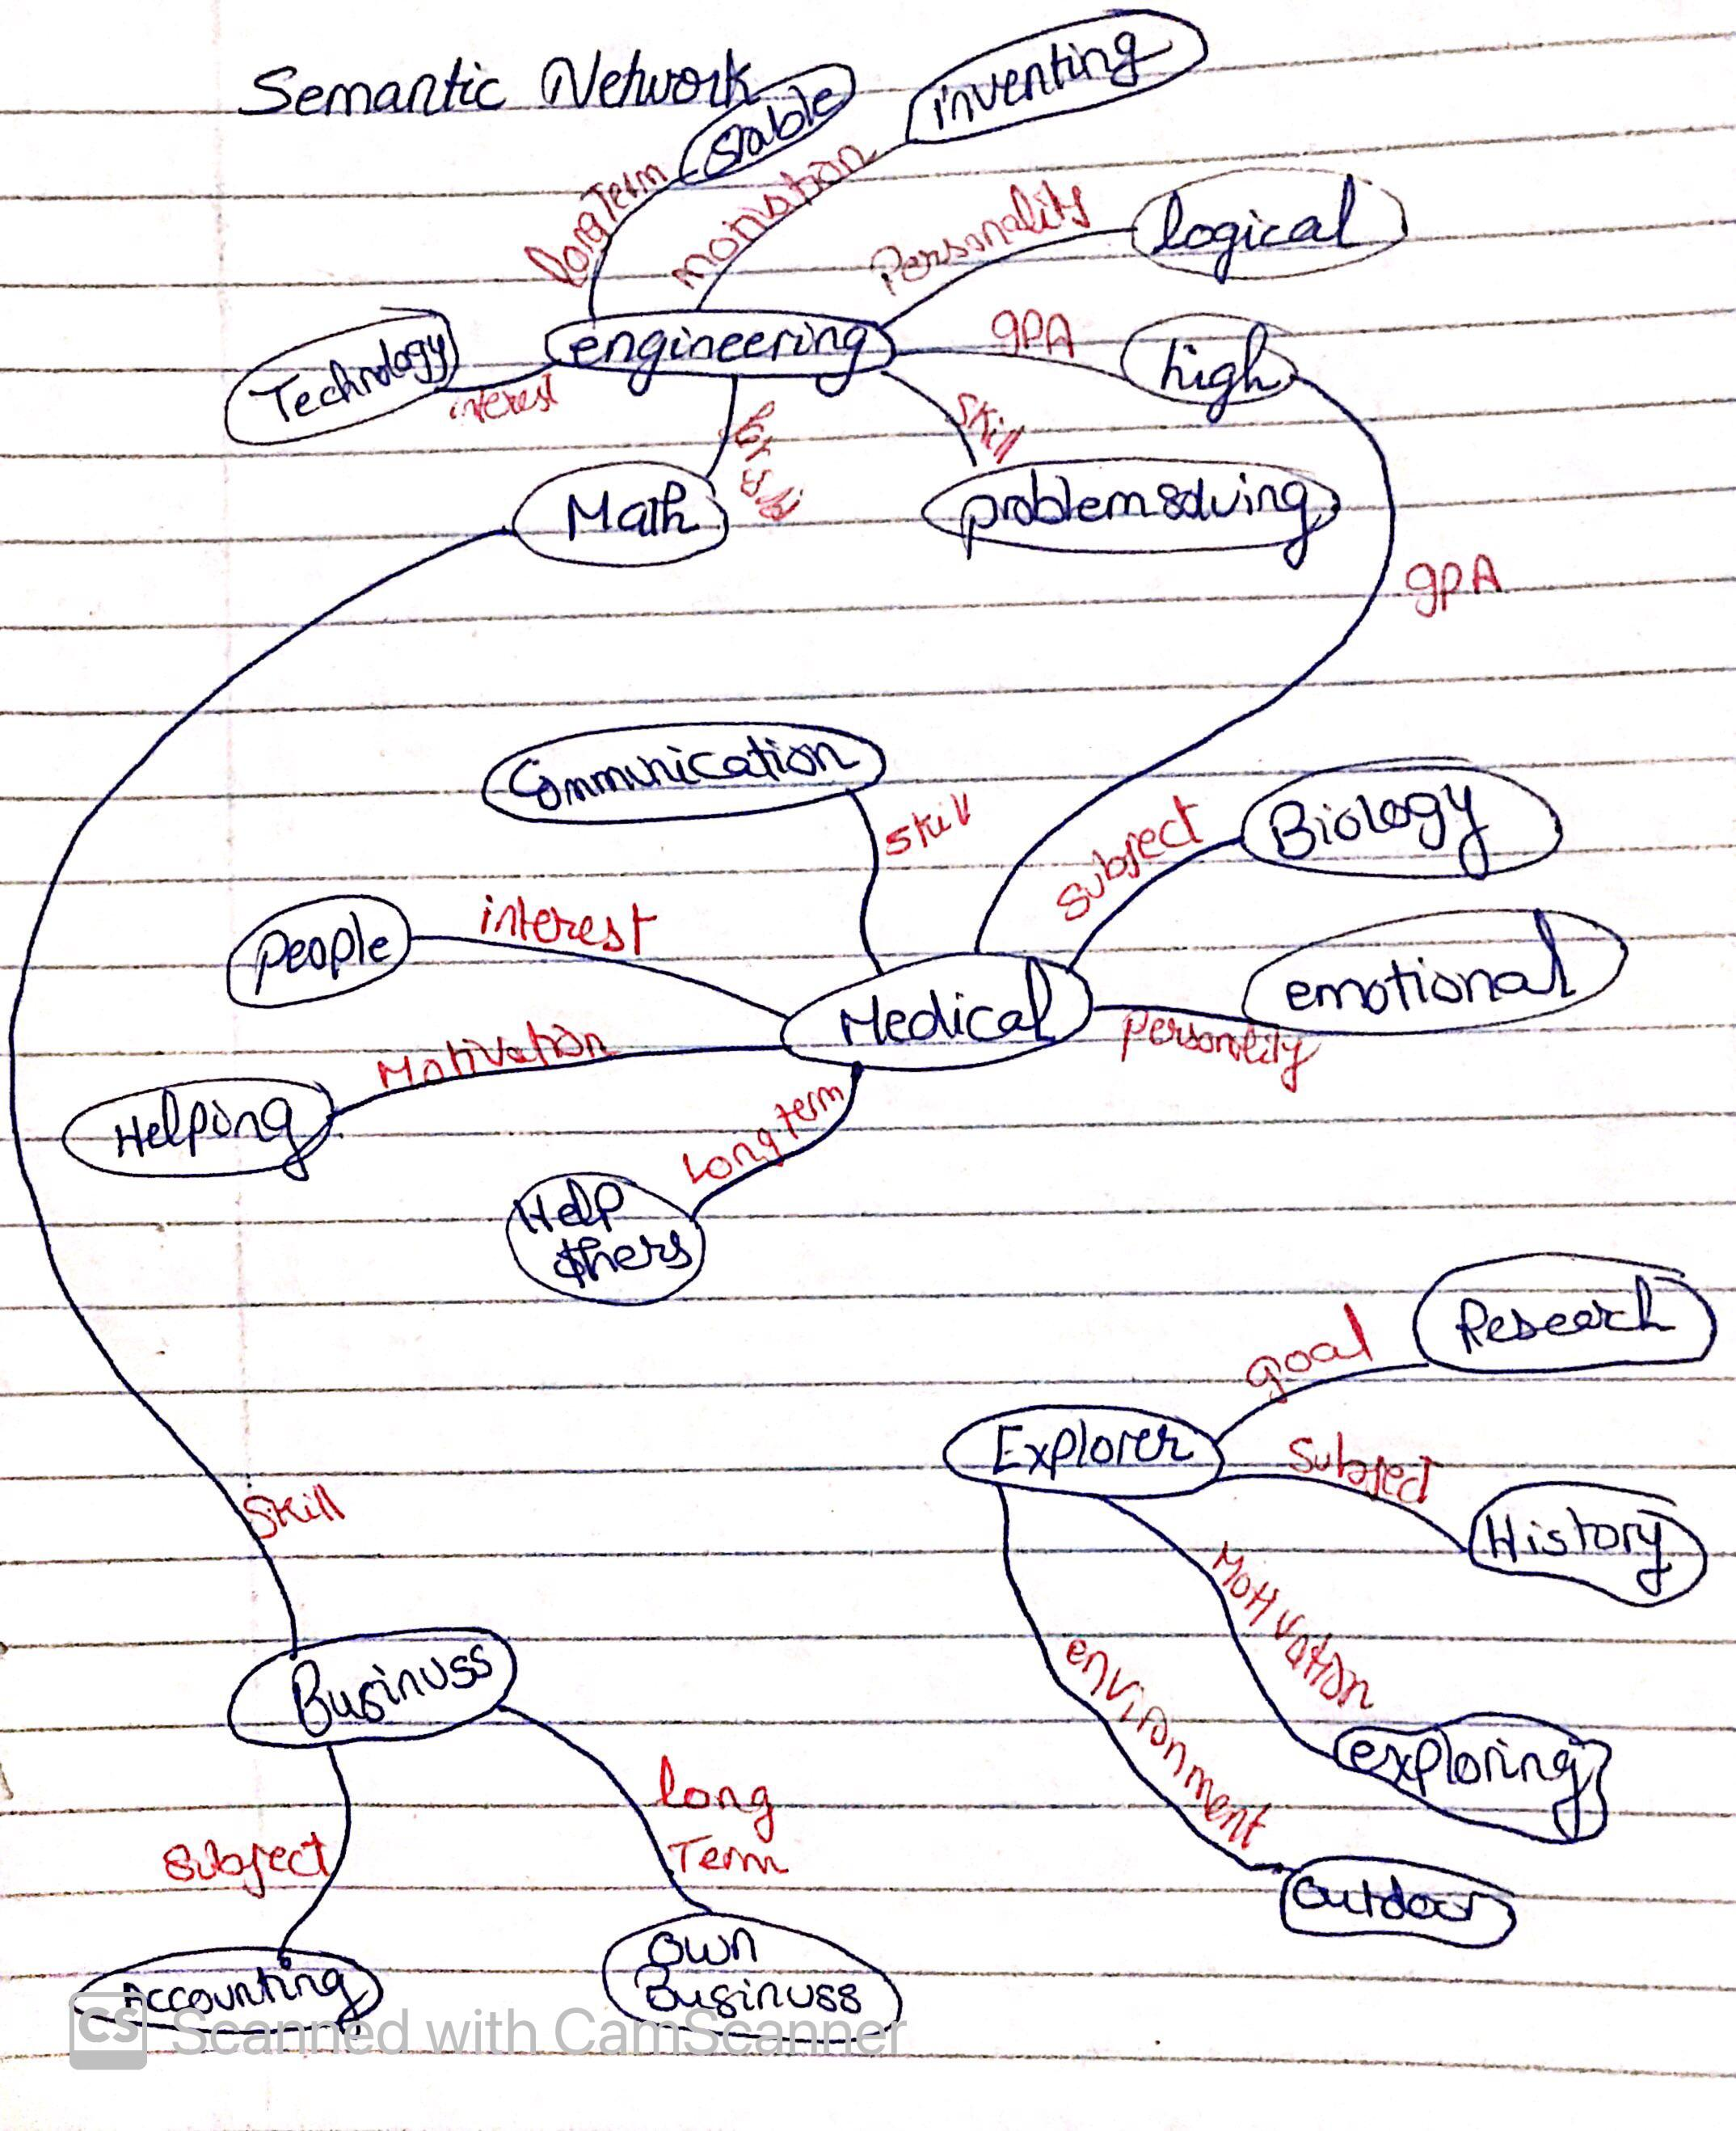 Semantic Network
stable
inventing
long Term
motivation
Personality
logical
engineering
gPA
high
Technology
interest
skill
Math
problem solving
gPA
Communication
skill
subject
Biology
people
interest
emotional
Medical
personality
Motivation
Helping
Long term
Help
others
Research
goal
Explorer
Subject
History
Skill
Motivation
environment
Businuss
exploring
long
Term
subject
outdoor
own
Businuss
Accounting
CS Scanned with CamScanner